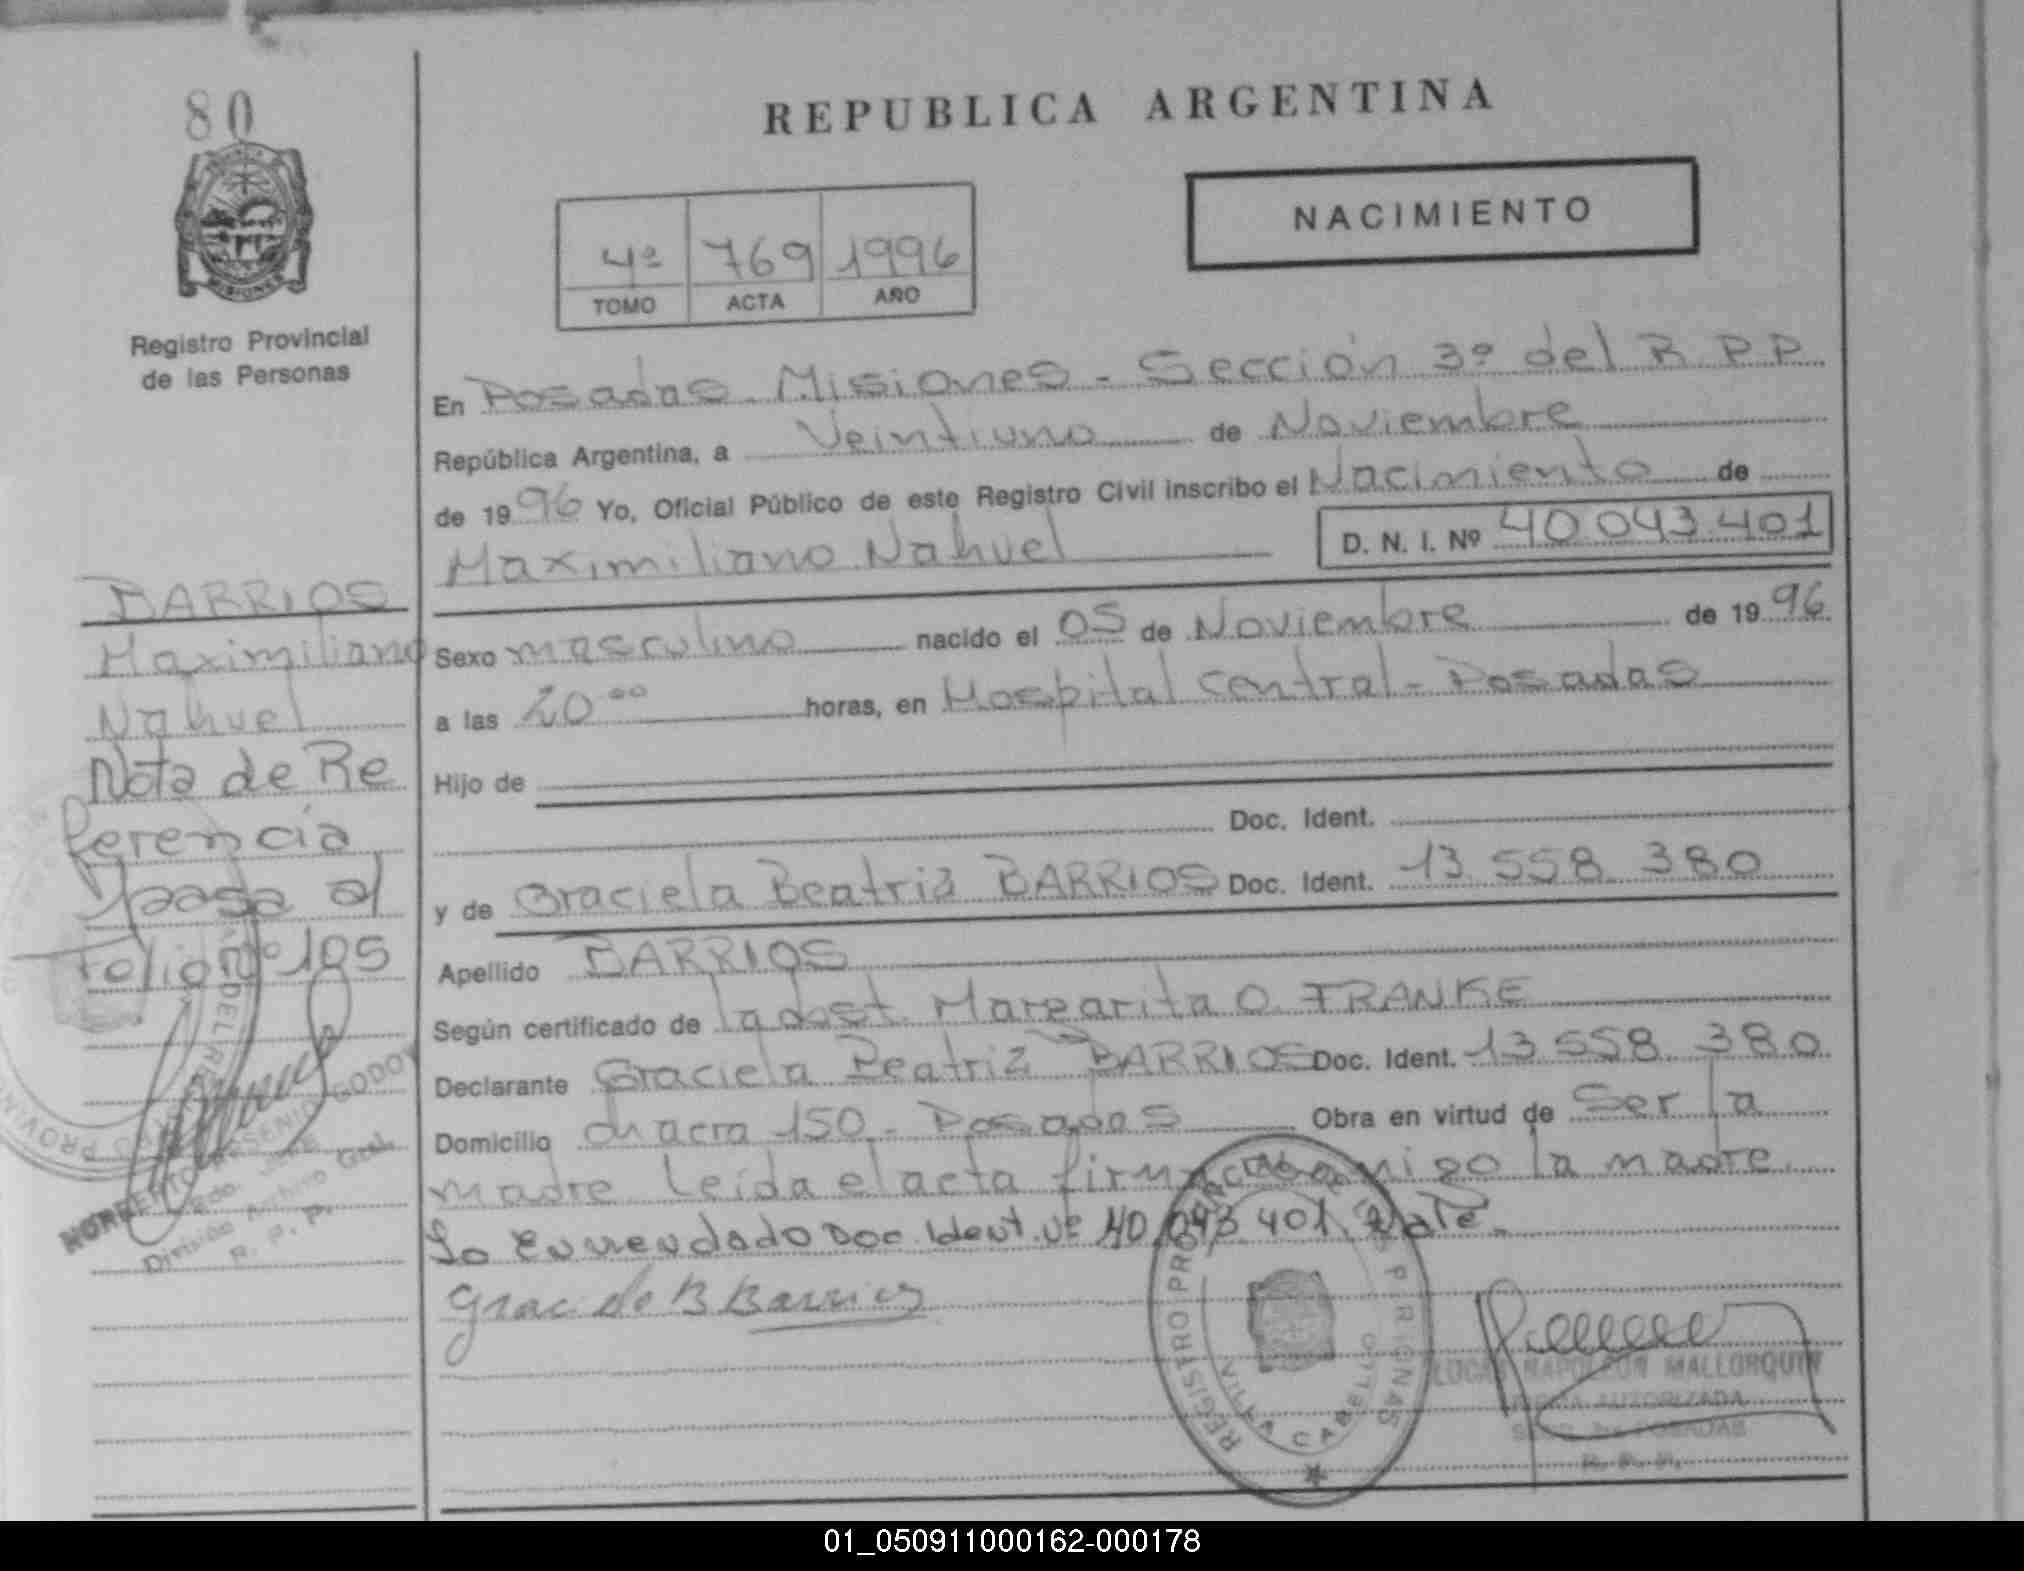 80
MISIONES
Registro Provincial
de las Personas
REPUBLICA ARGENTINA
NACIMIENTO
4º 769 1996
TOMO ACTA AÑO
En Posadas Misiones - Sección 3º del R P P
República Argentina, a Veintiuno de Noviembre
de 1996 Yo, Oficial Público de este Registro Civil inscribo el Nacimiento de
Maximiliano Nahuel D. N. I. Nº 40 043 401
Sexo masculino nacido el 05 de Noviembre de 1996
a las 20 00 horas, en Hospital Central - Posadas
Hijo de
Doc. Ident.
y de Graciela Beatriz BARRIOS Doc. Ident. 13 558 380
Apellido BARRIOS
Según certificado de la obst. Margarita O. FRANKE
Declarante Graciela Beatriz BARRIOS Doc. Ident. 13 558 380
Domicilio chacra 150 - Posadas Obra en virtud de Ser la
madre Leída el acta firma conmigo la madre
Lo Enmendado Doc. Ident. Nº 40 043 401 Vale.
BARRIOS
Maximiliano
Nahuel
Nota de Re
ferencia
pasa al
Folio nº 105
NORBERTO ARSENIO GODOY
División Archivo Gral.
R. P. P.
REGISTRO
LUCAS NAPOLEON MALLORQUIN
FIRMA AUTORIZADA
POSADAS
R. P. P.
01_050911000162-000178